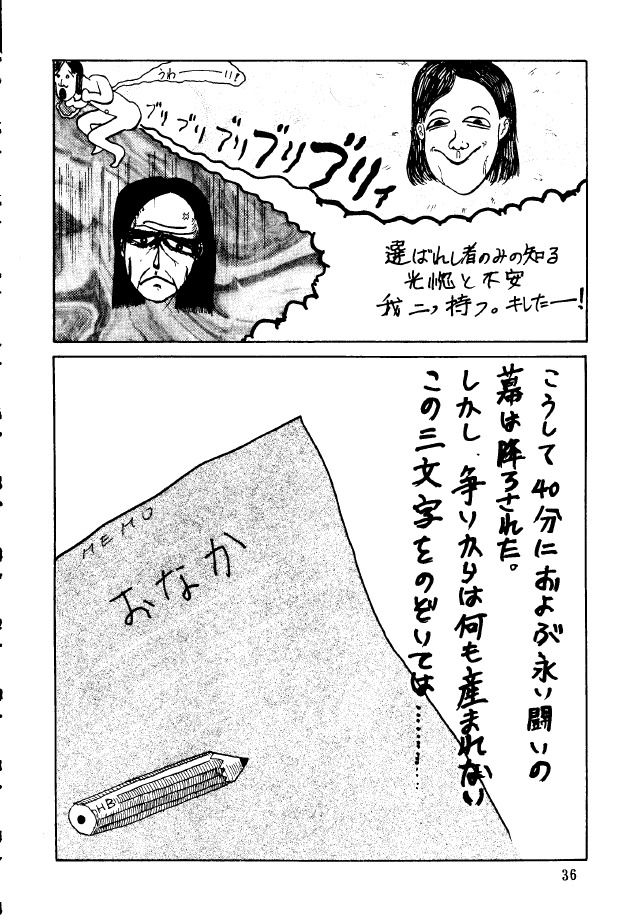 うわーい!
ブリブリブリブリブリィ
選ばれし者のみの知る
光惚と不安
我二ッ持つ。キしたー!
こうして40分におよぶ永い闘いの
幕は降ろされた。
しかし、争いからは何も産まれない
この三文字をのぞいては………
MEMO
おなか
HB
36